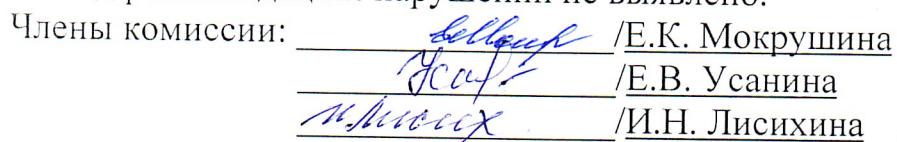 нарушений не выявлено.
Члены комиссии: /Е.К. Мокрушина
/Е.В. Усанина
/И.Н. Лисихина